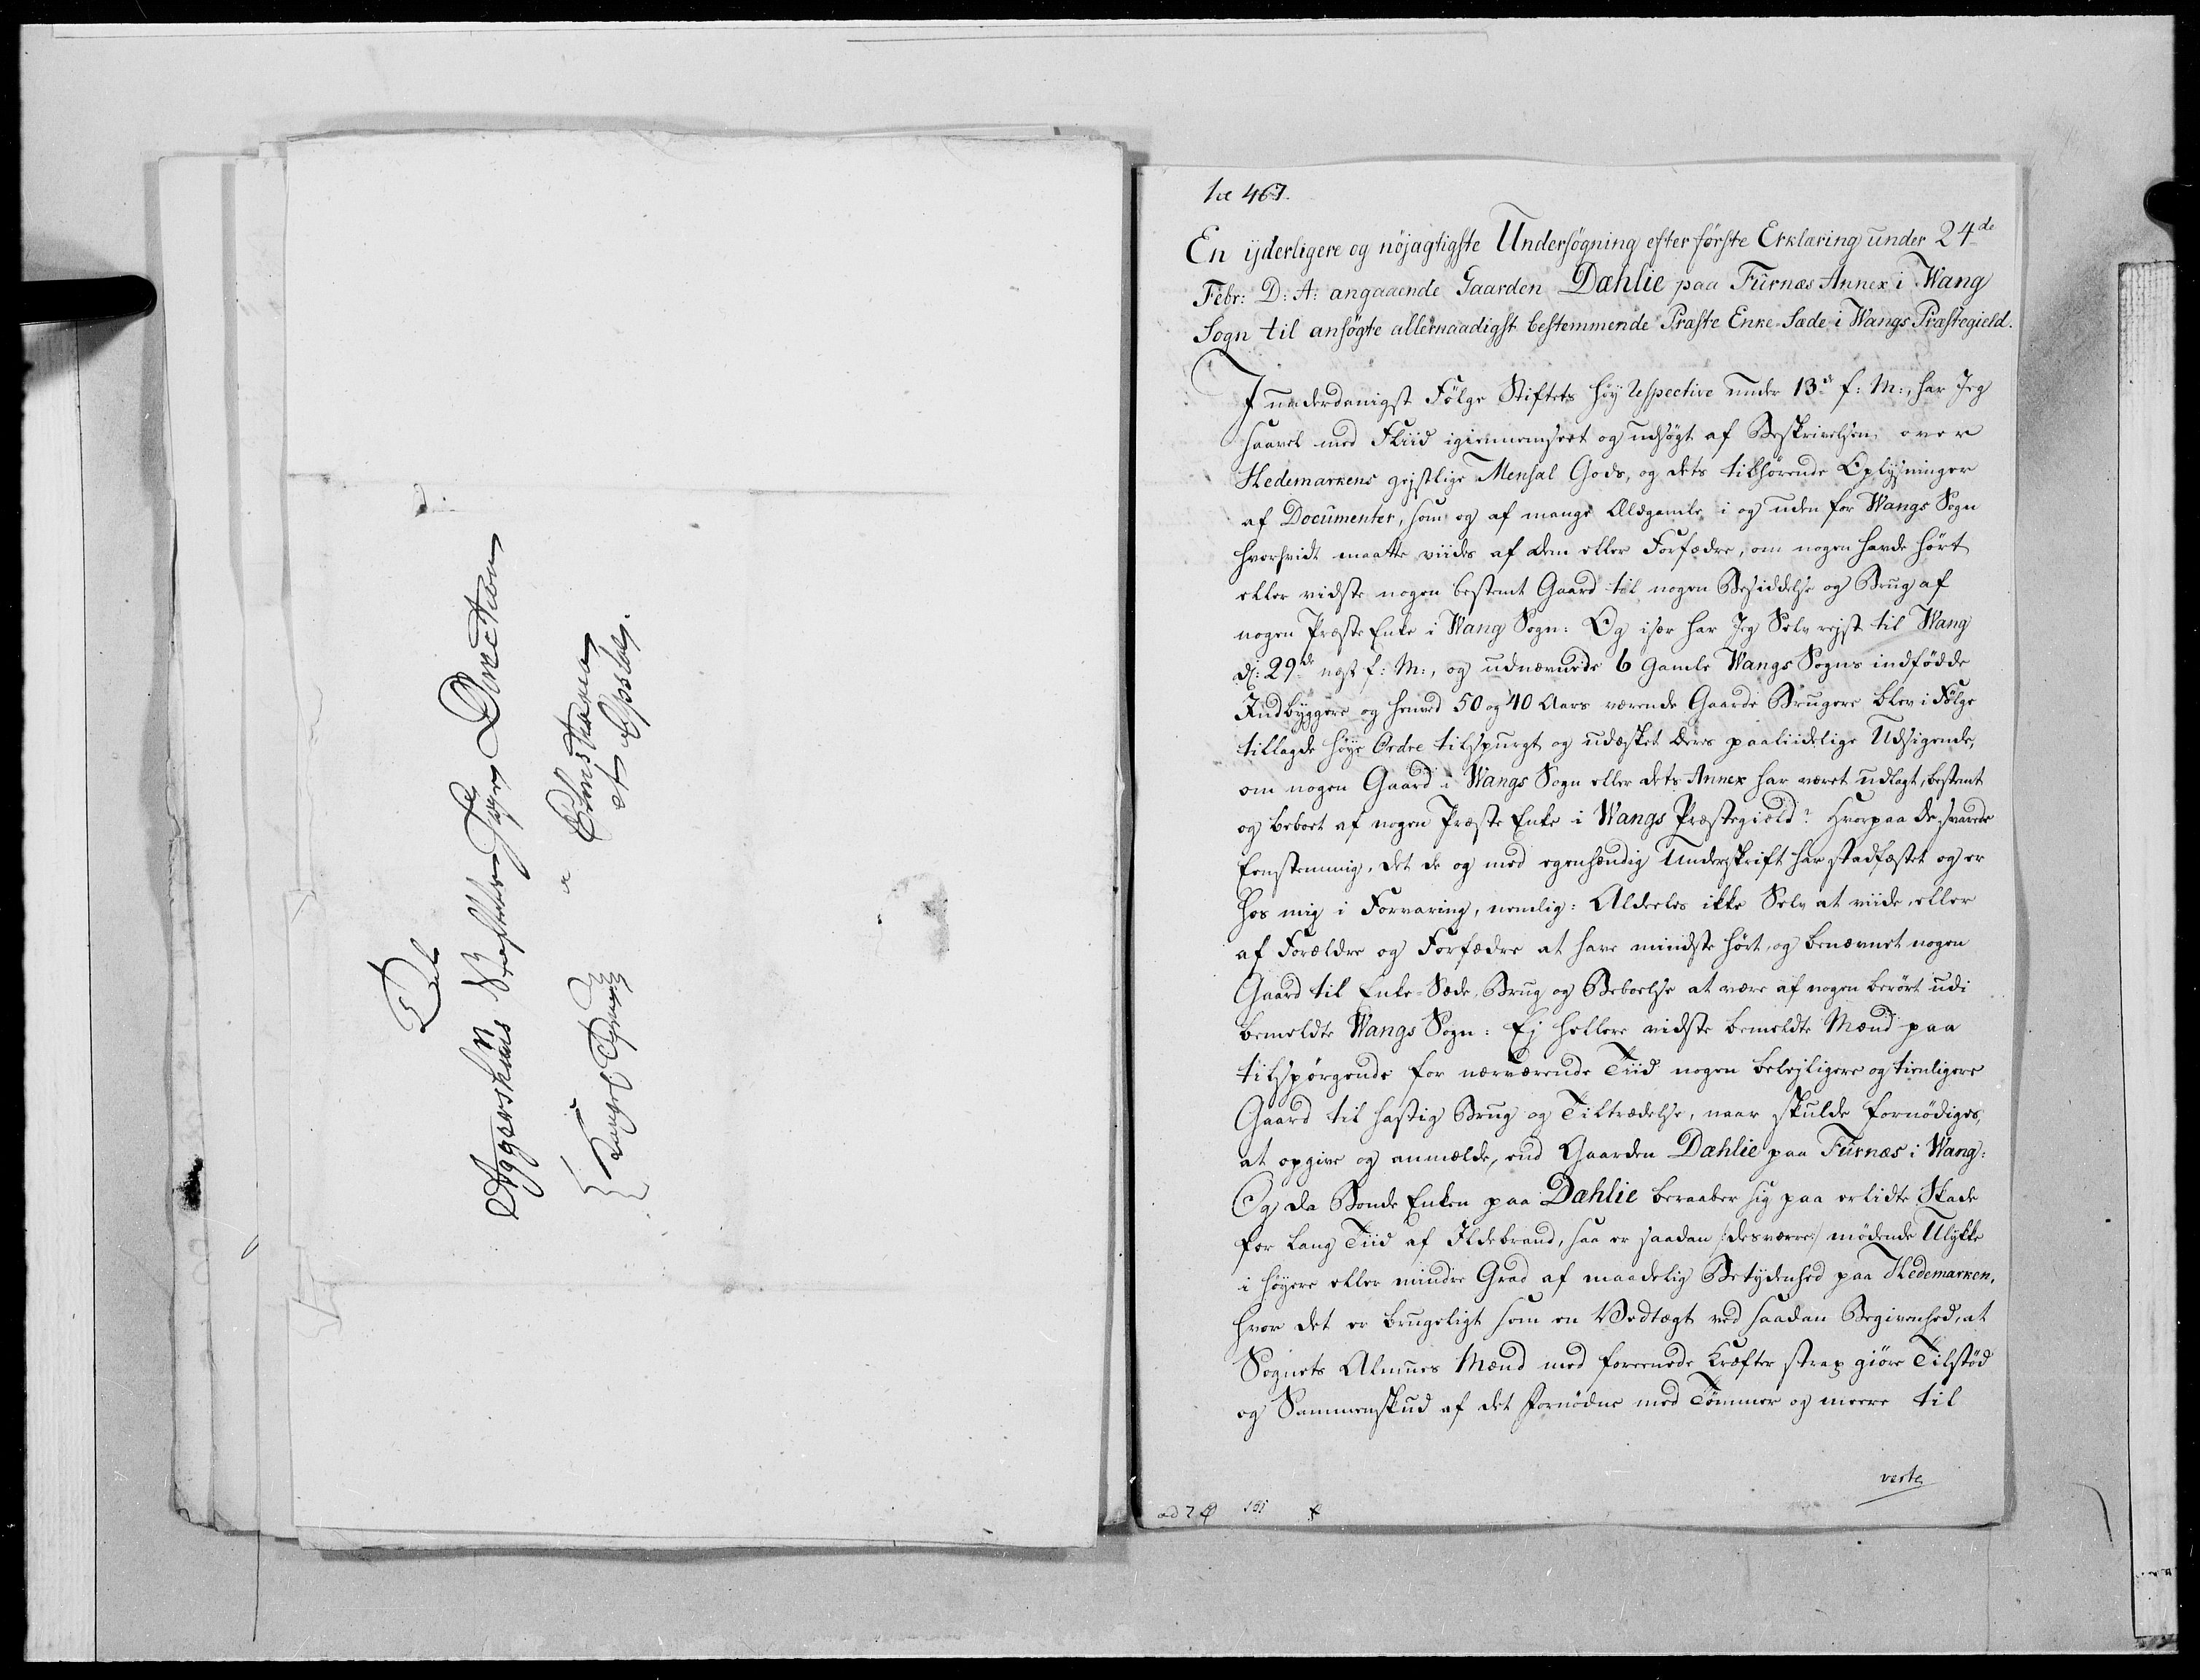 Til
Aggershuus Stiftets Høye Direction
Christiania
et Opslag.
Kongel: Tienneste
No 467.
En ijderligere og nöjagtigste Undersögning efter förste Erklæring under 24de
Febr: D: A: angaaende Gaarden Dæhlie paa Furnæs Annex i Wang
Sogn til ansögte allernaadigst bestemmende Præste Enke-Sæde i Wangs Præstegield.
I underdanigst Fölge Stiftets höy Respective under 13de f: M:, har Jeg
saavel med Fliid igiennemseet og udsögt af Beskrivelsen over
Hedemarkens geistlige Mensal Gods, og dets tilhörende Oplysninger
af Documenter, som og af mange Ældgamle i og uden for Wangs Sogn
hvorvidt maatte viides af dem eller Forfædre, om nogen havde hört
eller vidste nogen bestemt Gaard til nogen Besiddelse og Brug af
nogen Præste Enke i Wang Sogn: Og især har Jeg Selv rejst til Wang
d: 29de næst f: M:, og udnævnede 6 gamle Wangs Sogns indfödde
Indbyggere og henved 50 og 40 Aars værende Gaards Brugere blev i Fölge
tillagde höye Ordre tilspurgt og udæsket deres paaliidelige Udsigende,
om nogen Gaard i Wangs Sogn eller dets Annex har været udlagt, bestemt
og beboet af nogen Præste Enke i Wangs Præstegield? Hvorpaa de svarede
Eenstemmig, det de og med egenhændig Underskrift har stadfæstet og er
hos mig i Forvaring, nemlig: Aldeeles ikke Selv at viide, eller
af Forældre og Forfædre at have mindste hört, og benævnet nogen
Gaard til Enke-Sæde, Brug og Beboelse at være af nogen berört udi
bemeldte Wangs Sogn: Ej hellere vidste bemeldte Mænd paa
tilspörgende for nærværende Tiid nogen belejligere og tienligere
Gaard til hastig Brug og Tiltrædelse, naar skulde fornödiges,
at opgive og anmælde, end Gaarden Dæhlie paa Furnæs i Wang:
Og da Bonde Enken paa Dæhlie beraaber sig paa erlidte Skade
for lang Tiid af Ildebrand, saa er saadan /:desværre:/ mödende Ulykke
i höyere eller mindre Grad af maadelig Betydenhed paa Hedemarken,
hvor det er brugeligt som en Vedtægt ved saadan Begivenhed, at
Sognets Almues Mænd med foreenede Kræfter strax giöre Tilstöd
og Sammenskud af det Fornödne med Tömmer og meere til
verte